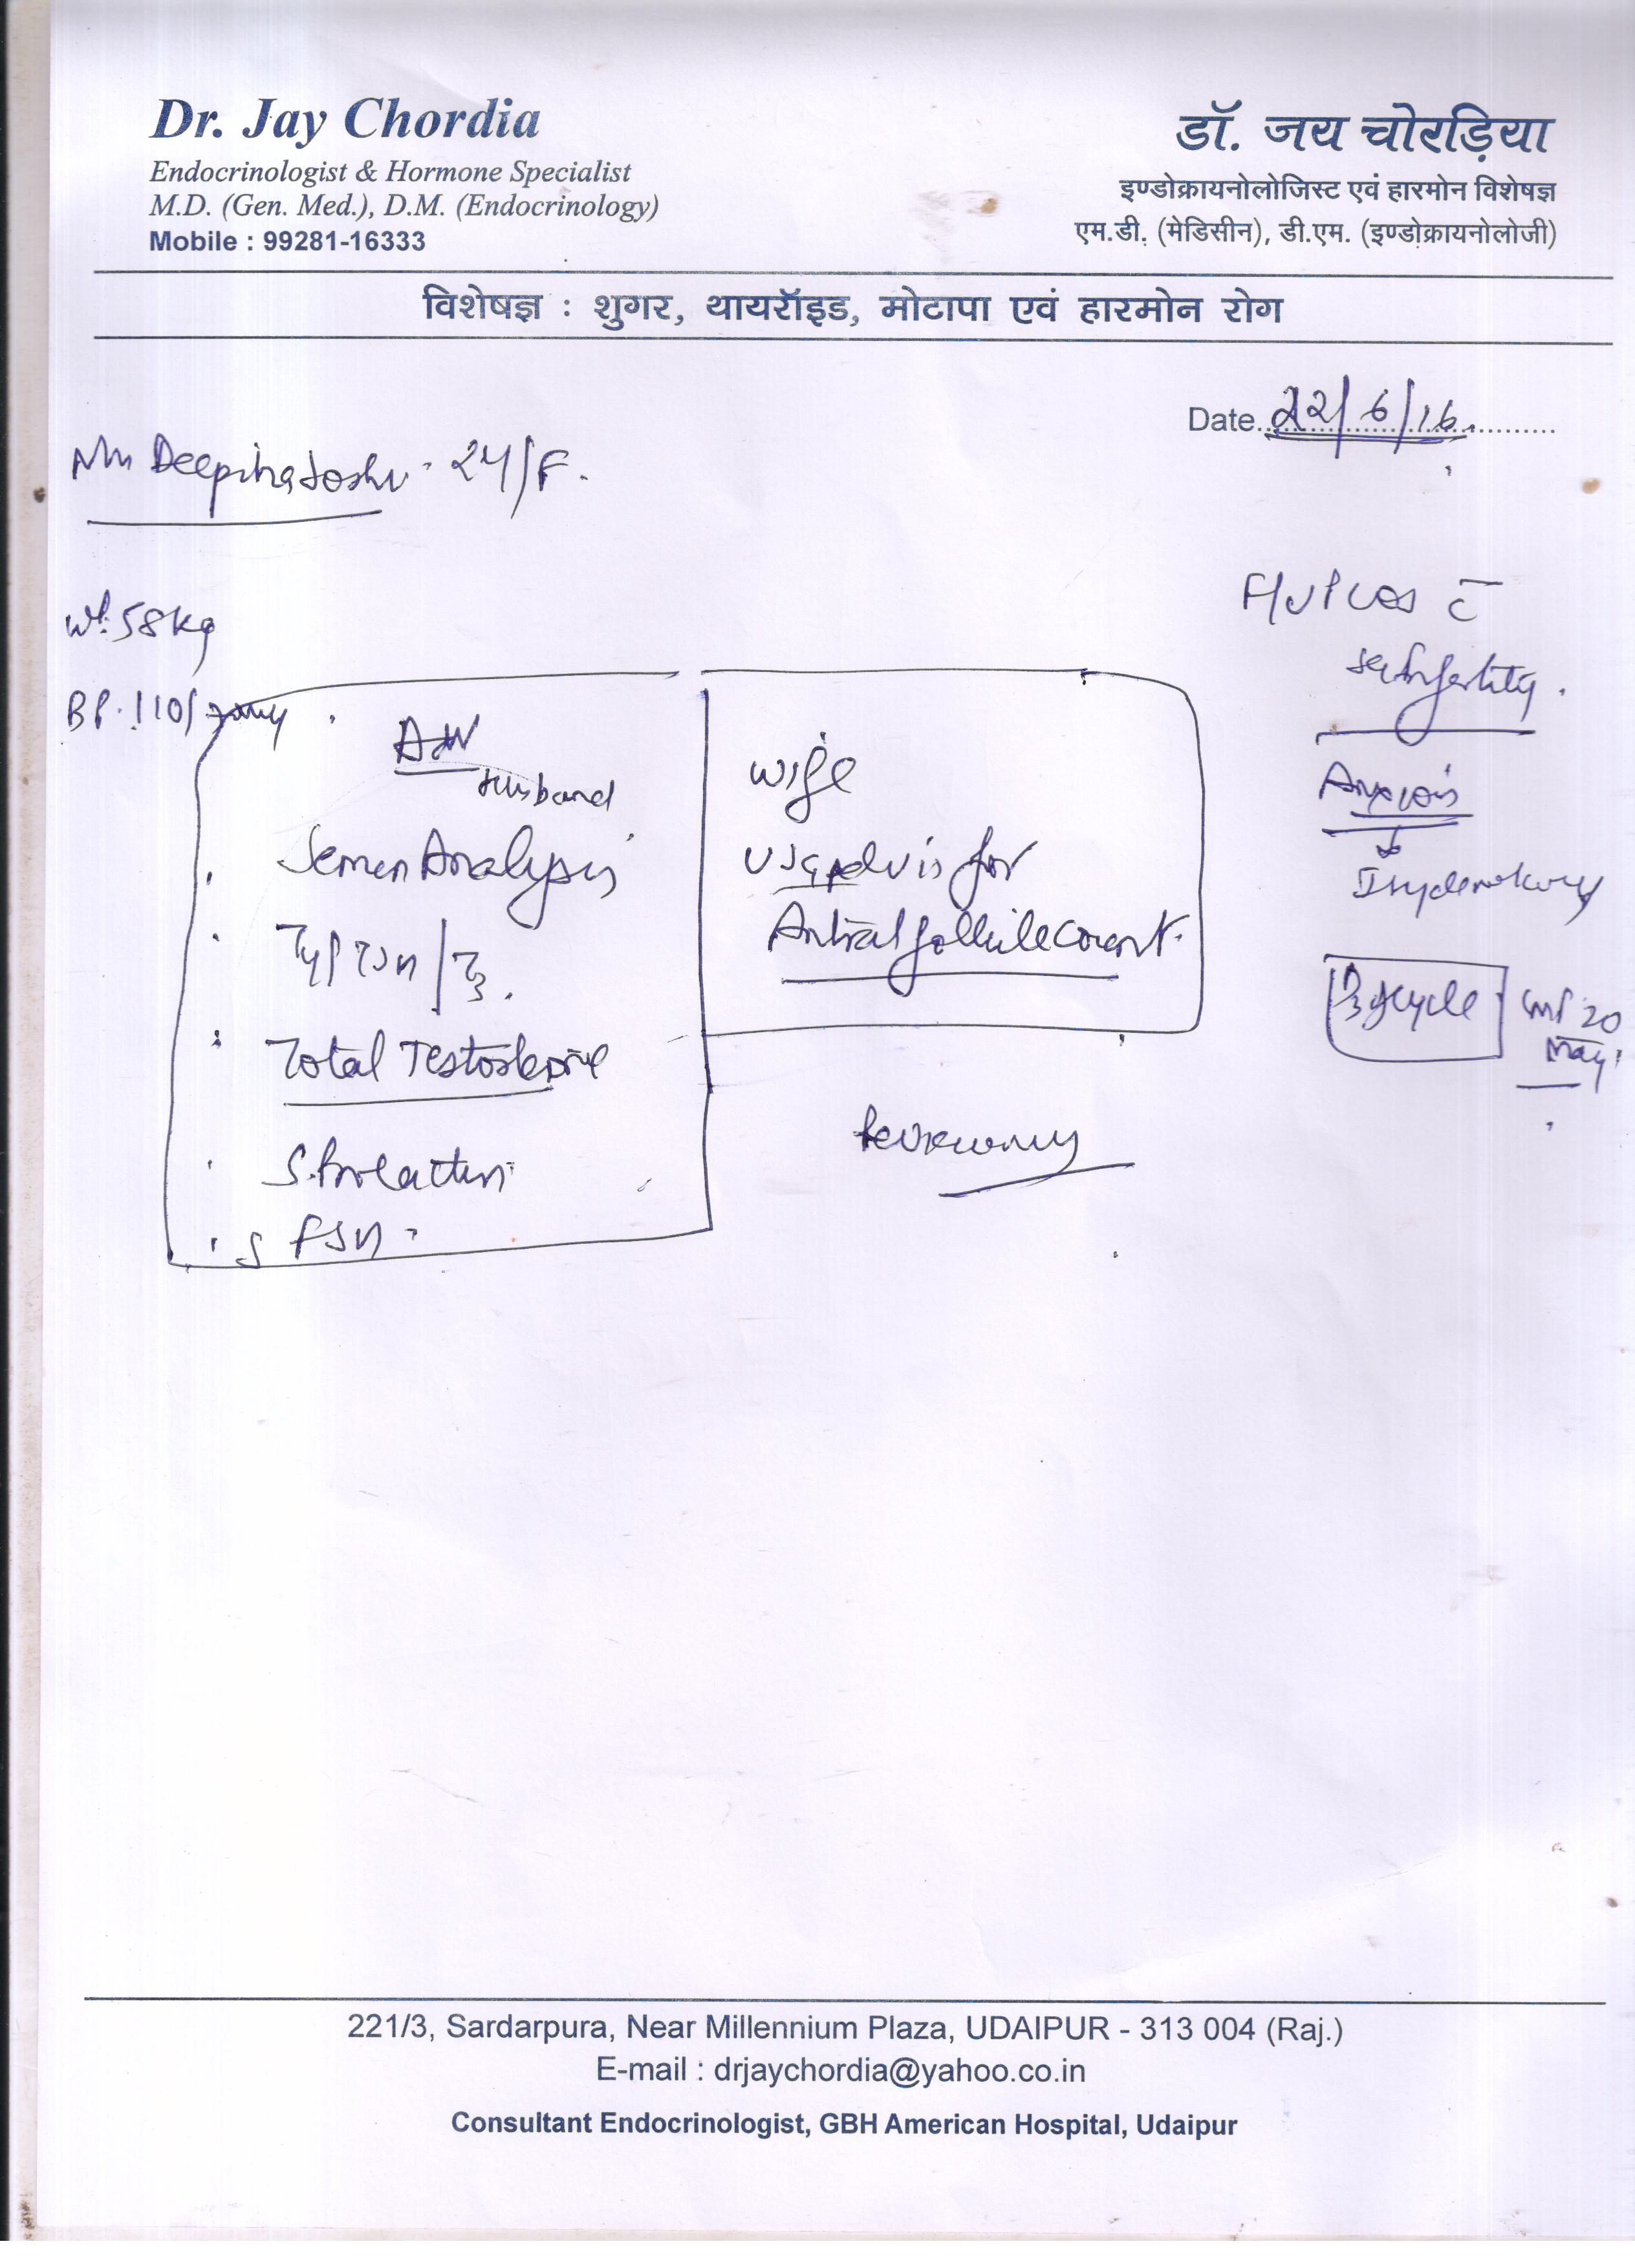 Dr. Jay Chordia
Endocrinologist & Hormone Specialist
M.D. (Gen. Med.), D.M. (Endocrinology)
Mobile : 99281-16333
डॉ. जय चोरड़िया
इण्डोक्रायनोलोजिस्ट एवं हारमोन विशेषज्ञ
एम.डी. (मेडिसीन), डी.एम. (इण्डोक्रायनोलोजी)
विशेषज्ञ : शुगर, थायरॉइड, मोटापा एवं हारमोन रोग
Date 22/6/16
24/F.
Wt. 58kg
BP. 110/
Husband
Semen Analysis
T4/TSH/T3.
Total Testosterone
S. Prolactin
S FSH
Wife
USG pelvis for
Antral follicle count.
F/U PCOS c̄
subfertility.
D3 of cycle
LMP 20
May
221/3, Sardarpura, Near Millennium Plaza, UDAIPUR - 313 004 (Raj.)
E-mail : drjaychordia@yahoo.co.in
Consultant Endocrinologist, GBH American Hospital, Udaipur